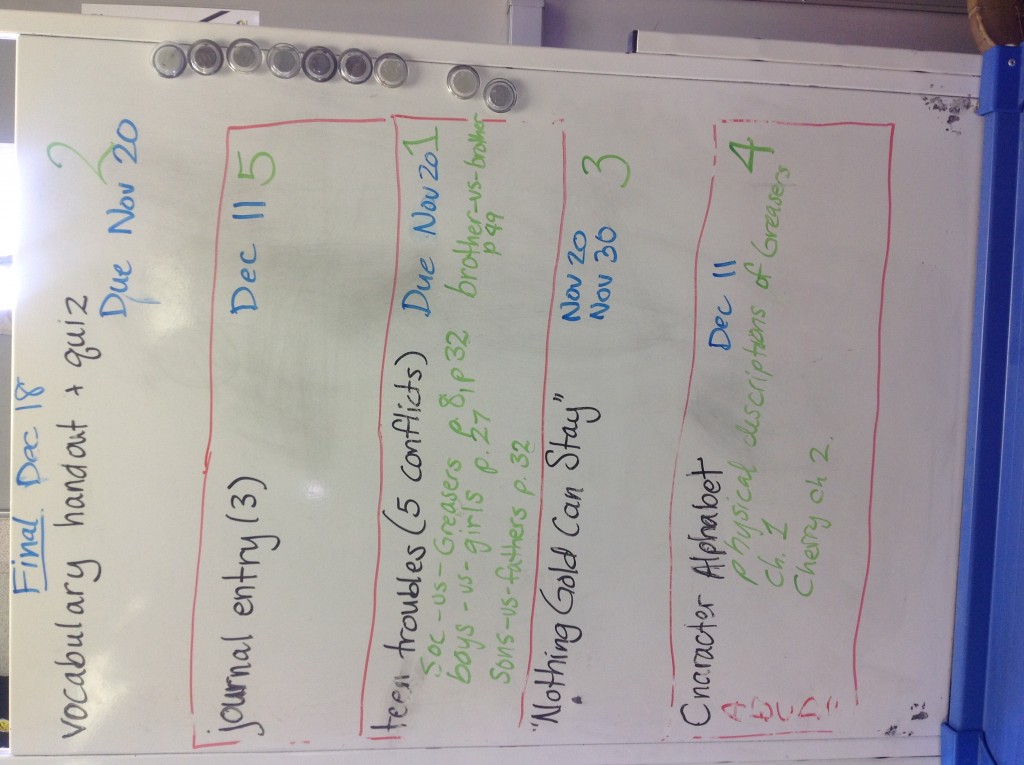 Final Dec 18
vocabulary handout + quiz 2
Due Nov 20
journal entry (3) Dec 11 5
teen troubles (5 conflicts) Due Nov 20 1
Soc-vs-Greasers p 8, p 32 brother-vs-brother
boys-vs-girls p. 27 p 49
Sons-vs-fathers p. 32
"Nothing Gold Can Stay" Nov 20 3
Nov 30
Character Alphabet Dec 11 4
A physical descriptions of Greasers
B ch. 1
C Cherry ch 2.
D
E